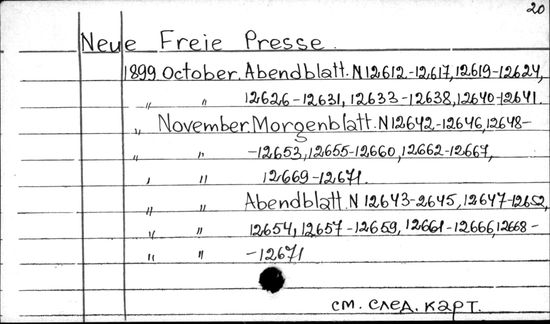 20
Neue Freie Presse.
1899. October. Abendblatt. N 12612-12617, 12619-12624,
" " 12626-12631, 12633-12638, 12640-12641.
" November. Morgenblatt. N 12642-12646, 12648-
" " -12653, 12655-12660, 12662-12667,
" " 12669-12671.
" " Abendblatt. N 12643-2645, 12647-12652,
" " 12654, 12657-12659, 12661-12666, 12668-
" " -12671
см. след. карт.